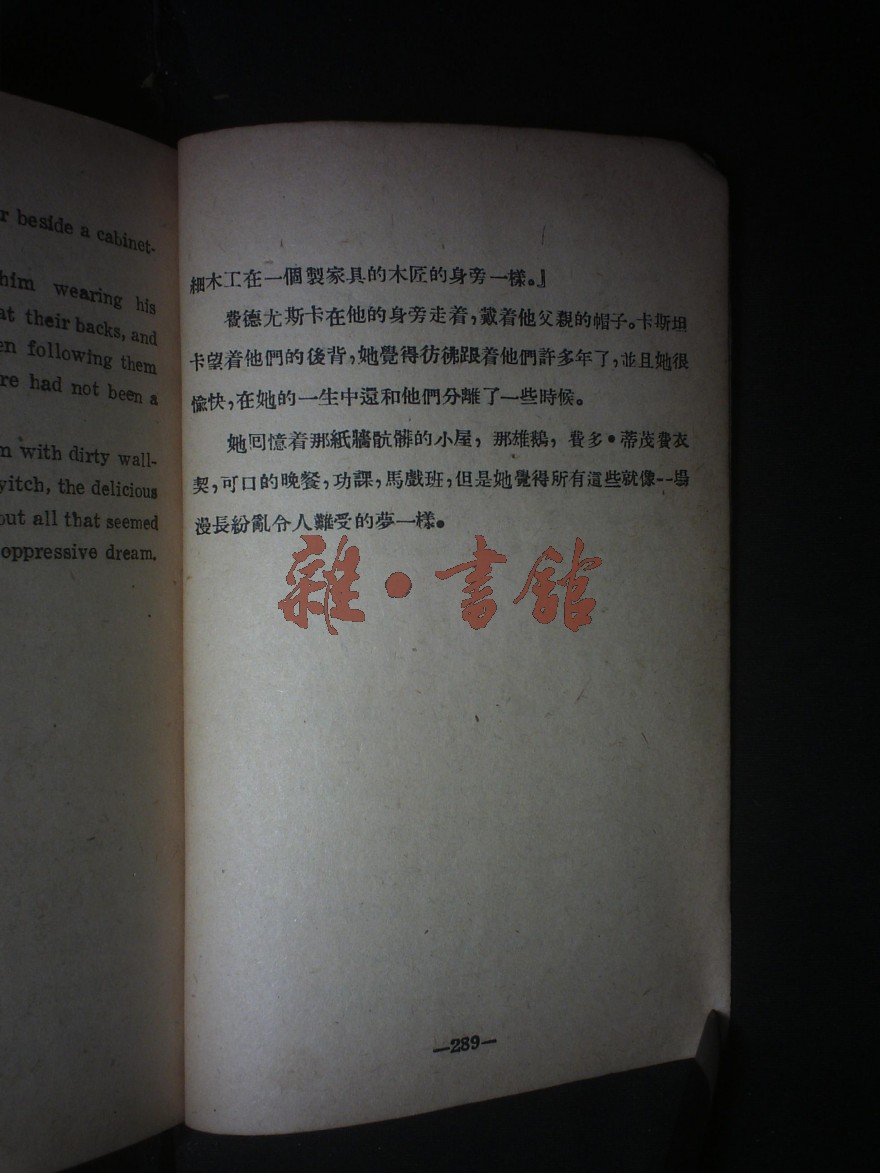 r beside a cabinet-
him wearing his
at their backs, and
en following them
re had not been a
m with dirty wall-
vitch, the delicious
out all that seemed
oppressive dream.
細木工在一個製家具的木匠的身旁一樣。』
費德尤斯卡在他的身旁走着，戴着他父親的帽子。卡斯坦
卡望着他們的後背，她覺得彷彿跟着他們許多年了，並且她很
愉快，在她的一生中還和他們分離了一些時候。
她回憶着那紙牆骯髒的小屋，那雄鵝，費多·蒂茂費衣
契，可口的晚餐，功課，馬戲班，但是她覺得所有這些就像一場
漫長紛亂令人難受的夢一樣。
雜·書館
—289—